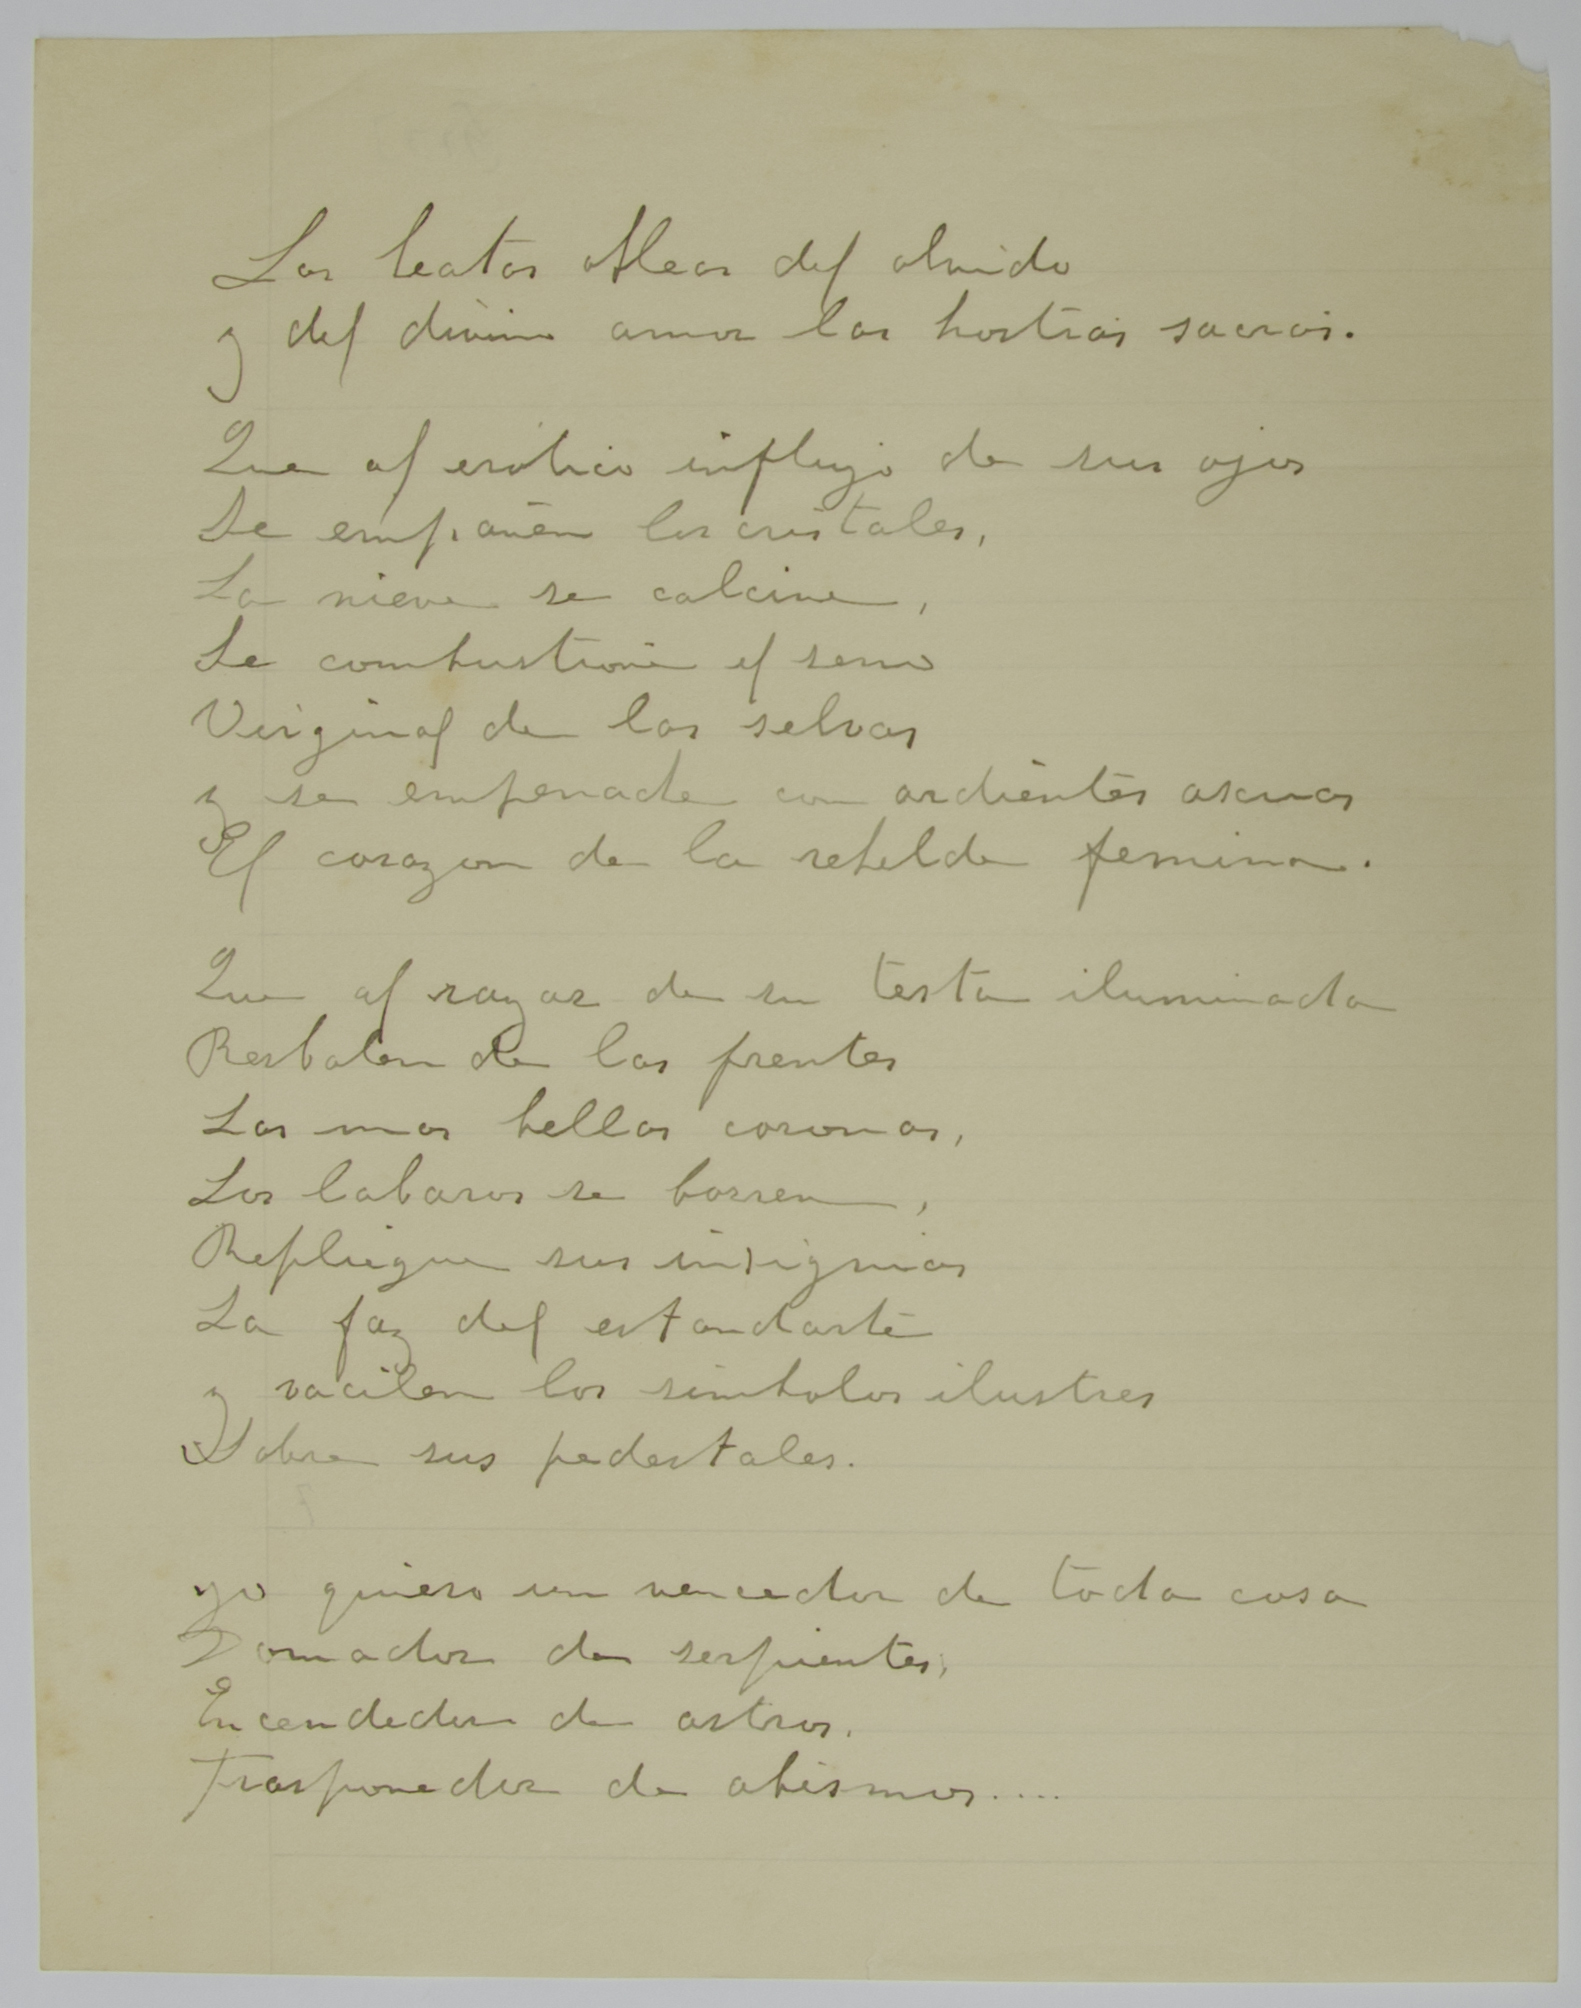 Las beatas obleas del olvido
y del divino amor las hostias sacras.
Que al erótico influjo de sus ojos
Se empañen los cristales,
La nieve se calcine,
Se combustione el seno
Virginal de las selvas
y se empenache con ardientes ascuas
El corazon de la rebelde femina.
Que al rayar de su testa iluminada
Resbalen de las frentes
Las mas bellas coronas,
Los labaros se borren,
Repliegue sus insignias
La faz del estandarte
y vacilen los simbolos ilustres
Sobre sus pedestales.
yo quiero un vencedor de toda cosa
Domador de serpientes,
Encendedor de astros.
Trasponedor de abismos....